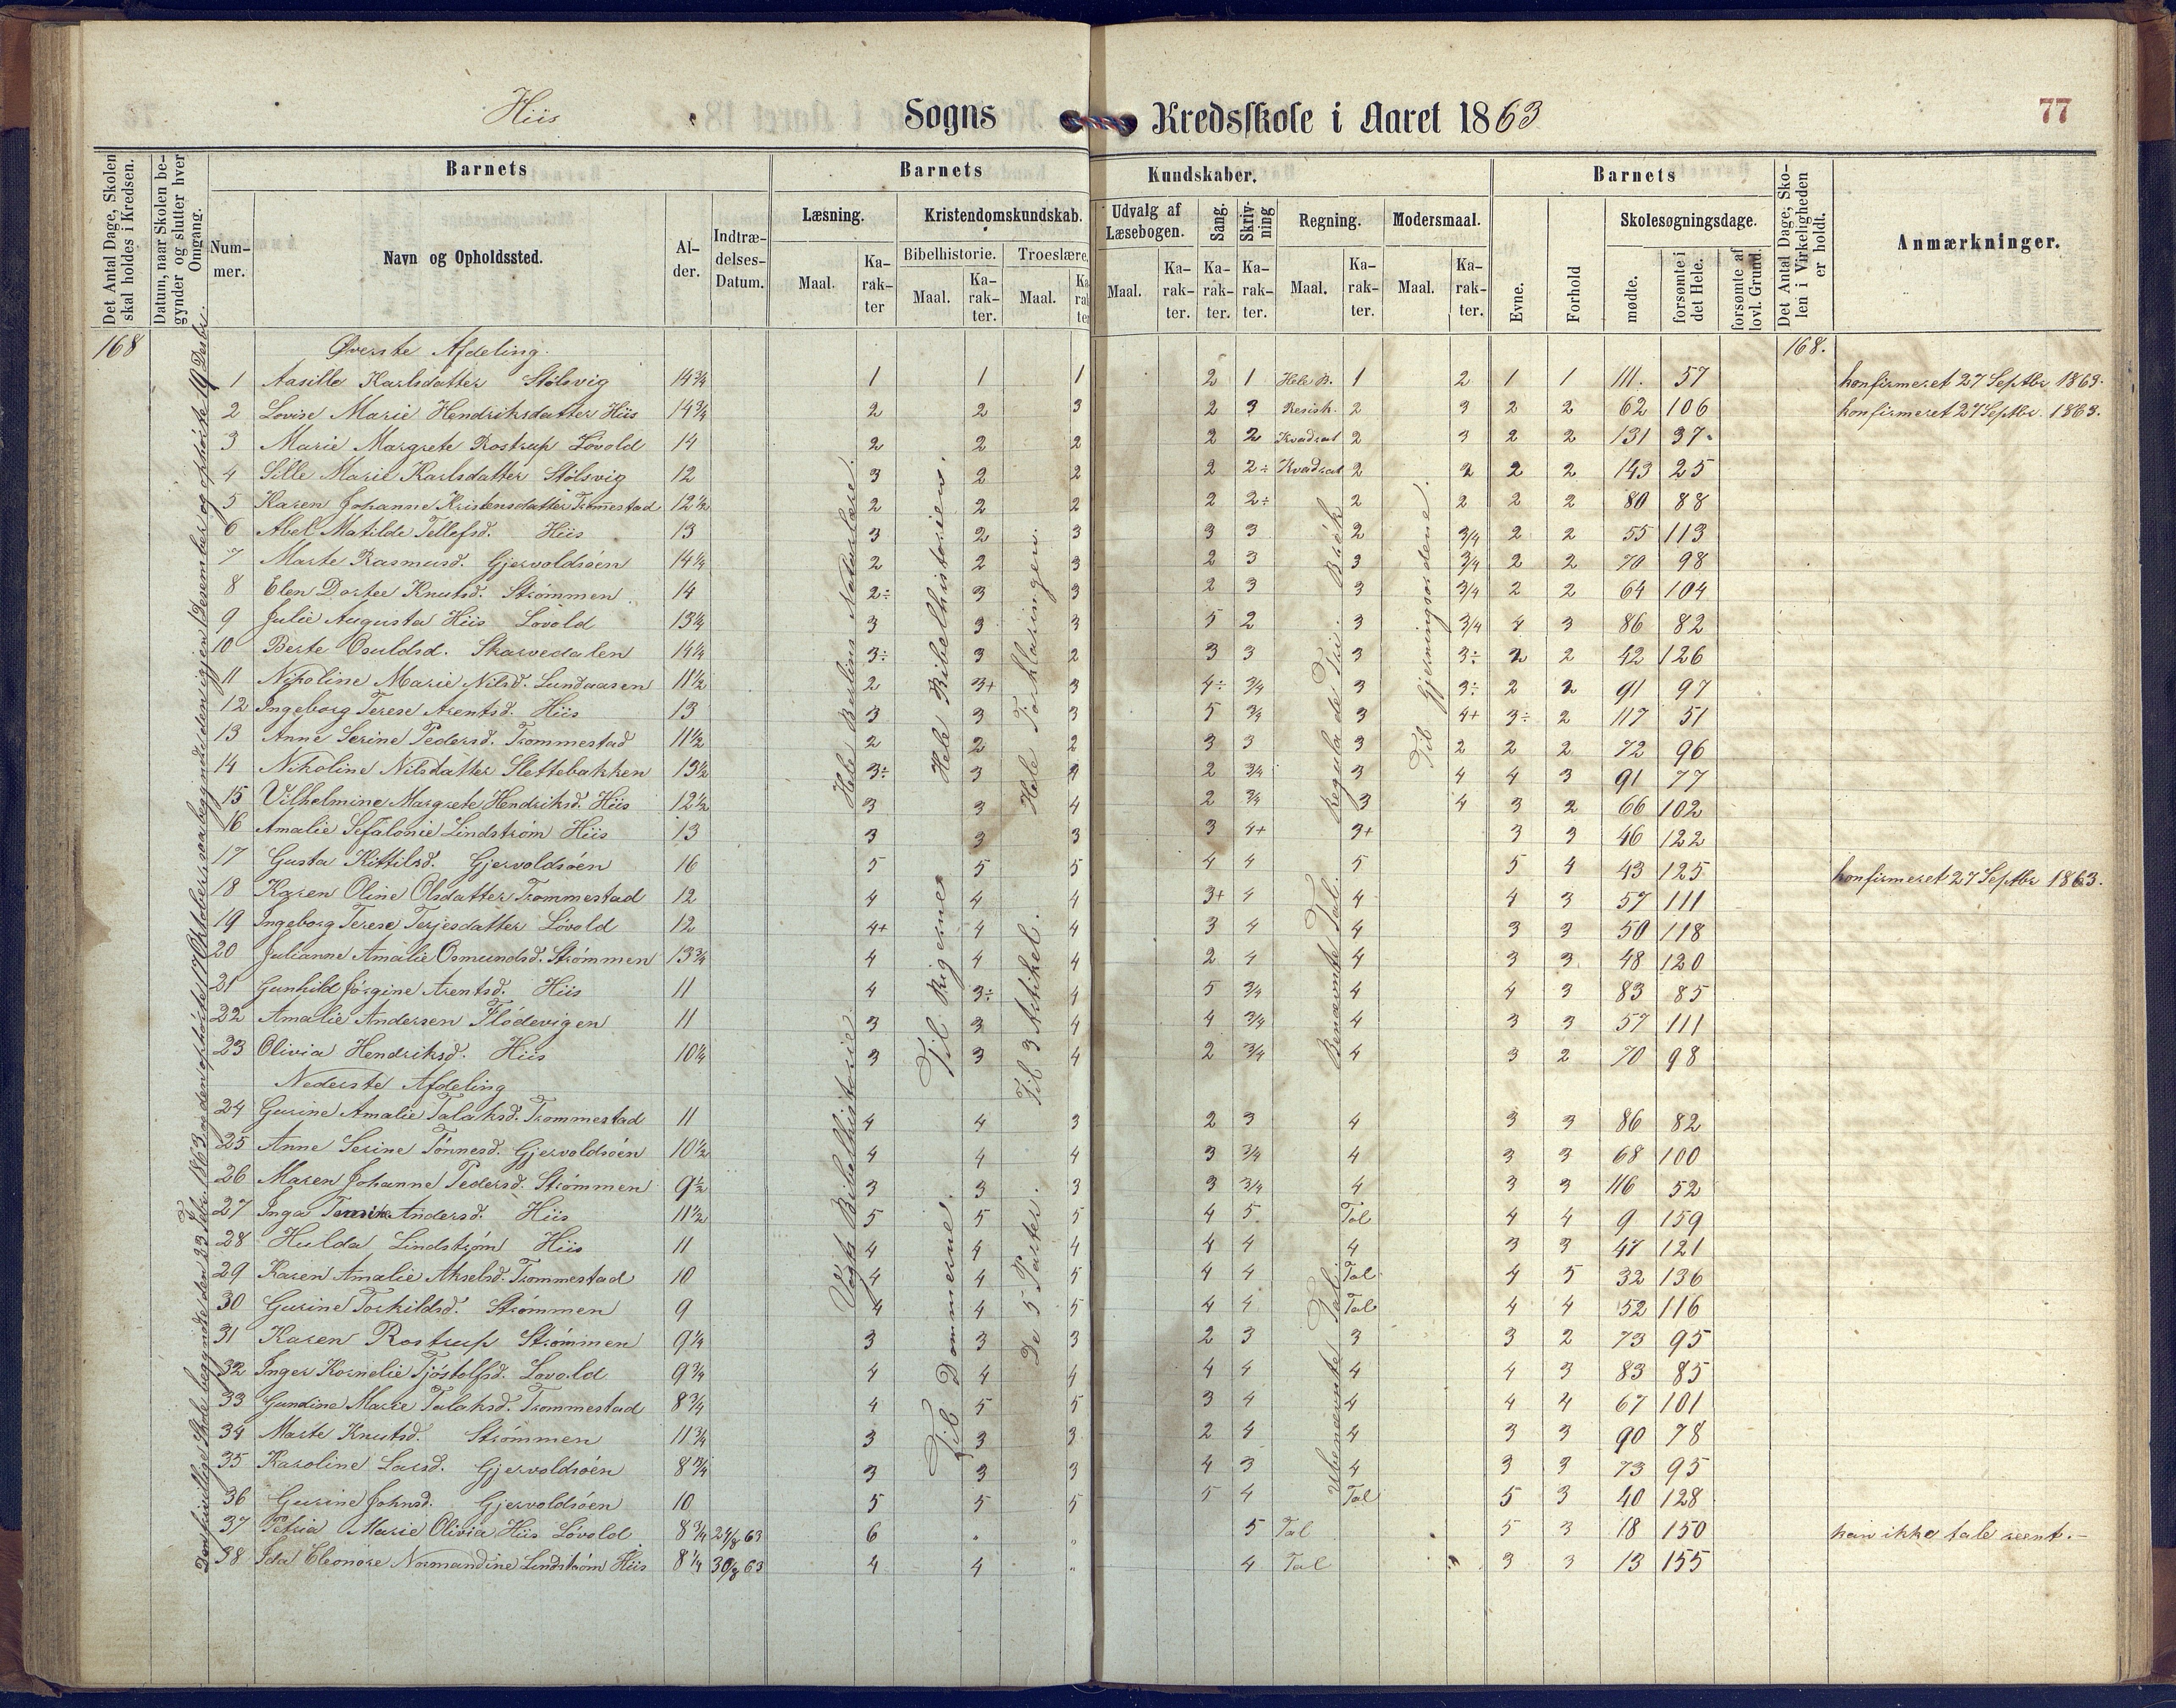 Hiis Sogns Kredsskole i Aaret 1863
77
Det Antal Dage, Skolen skal holdes i Kredsen.
Datum, naar Skolen begynder og slutter hver Omgang.
Barnets
Nummer.
Navn og Opholdssted.
Alder.
Indtrædelses-Datum.
Barnets Kundskaber.
Læsning.
Maal.
Karakter
Kristendomskundskab.
Bibelhistorie.
Maal.
Karakter.
Troeslære.
Maal.
Karakter
Udvalg af Læsebogen.
Maal.
Karakter.
Sang.
Karakter.
Skrivning
Karakter.
Regning.
Maal.
Karakter.
Modersmaal.
Maal.
Karakter.
Barnets
Evne.
Forhold
Skolesøgningsdage.
mødte.
forsømte i det Hele.
forsømte af lovl. Grund.
Det Antal Dage, Skolen i Virkeligheden er holdt.
Anmærkninger.
168 Øverste Afdeling. 168.
1 Aasille Karlsdatter Stølsvig 14¾ 1 1 1 2 1 Hele B. 1 2 1 1 111. 57 konfirmeret 27 Septbr 1863.
2 Lovise Marie Hendriksdatter Hiis 14¾ 2 2 3 2 3 Resisk. 2 3 2 2 62 106 konfirmeret 27 Septbr. 1863.
3 Marie Margrete Rostrup Løvold 14 2 2 2 2 2 Kvadrat 2 3 2 2 131 37.
4 Sille Marie Karlsdatter Stølsvig 12 3 2 2 2 2÷ Kvadrat 2 2 2 2 143 25
5 Karen Johanne Kristensdatter Trommestad 12½ 2 2 2 2 2÷ 2 2 2 2 80 88
6 Abel Matilde Tellefsd. Hiis 13 3 2 3 3 3 2 3/4 2 2 55 113
7 Marte Rasmusd. Gjervoldsøen 14¼ 2 2 3 2 3 3 3/4 2 2 70 98
8 Elen Dortee Knutsd. Strømmen 14 2÷ 3 3 2 3 3 3/4 2 2 64 104
9 Julie Augusta Hiis Løvold 13¼ 3 3 3 5 2 3 3/4 4 3 86 82
10 Berte Osuldsd. Skarvedalen 14¼ 3÷ 3 2 3 3 3 3÷ 2 2 42 126
11 Nikoline Marie Nilsd. Lundaasen 11½ 2 3+ 3 4÷ 3/4 3 3÷ 2 2 91 97
12 Ingeborg Terese Arentsd. Hiis 13 3 3 3 5 3/4 3 4+ 3÷ 2 117 51
13 Anne Serine Pedersd. Trommestad 11½ 2 2 2 3 3 3 2 2 2 72 96
14 Nikoline Nilsdatter Slettebakken 13½ 3÷ 3 2 3/4 3 4 4 3 91 77
15 Vilhelmine Margrete Hendriksd. Hiis 12½ 3 3 4 2 3/4 3 4 3 2 66 102
16 Amalie Sefalonie Lindstrøm Hiis 13 3 3 3 3 4+ 3+ 3 3 46 122
17 Gusta Kittilsd. Gjervoldsøen 16 5 5 5 4 4 5 5 4 43 125 konfirmeret 27 Septbr 1863.
18 Karen Oline Olsdatter Trommestad 12 4 4 4 3+ 4 4 4 3 57 111
19 Ingeborg Terese Terjesdatter Løvold 12 4+ 4 4 3 4 4 3 3 50 118
20 Julianne Amalie Osmundsd. Strømmen 13¾ 4 4 4 2 4 4 3 3 48 120
21 Gunhild Jørgine Arentsd. Hiis 11 4 3÷ 4 5 3/4 4 4 3 83 85
22 Amalie Andersen Flødevigen 11 3 3 4 4 3/4 4 3 3 57 111
23 Olivia Hendriksd. Hiis 10¼ 3 3 4 2 3/4 4 3 2 70 98
Nederste Afdeling
24 Gurine Amalie Talaksd. Trommestad 11 4 4 3 2 3 4 3 3 86 82
25 Anne Serine Tønnesd. Gjervoldsøen 10½ 4 4 4 3 3/4 4 3 3 68 100
26 Maren Johanne Pedersd. Strømmen 9½ 3 3 3 3 3/4 4 3 3 116 52
27 Inga Andersd. Hiis 11½ 5 5 5 4 5 Tal 4 4 9 159
28 Hulda Lindstrøm Hiis 11 4 4 4 4 4 4 3 3 47 121
29 Karen Amalie Akselsd. Trommestad 10 4 4 5 4 4 Tal 4 5 32 136
30 Gurine Torkildsd. Strømmen 9 4 4 5 4 4 Tal 4 4 52 116
31 Karen Rostrup Strømmen 9¼ 3 3 3 2 3 3 3 2 73 95
32 Inger Kornelie Tjøstolfsd. Løvold 9¾ 4 4 4 4 4 4 4 3 83 85
33 Gundine Marie Talaksd. Trommestad 8¾ 4 5 5 3 4 4 4 4 67 101
34 Marte Knutsd. Strømmen 11¾ 3 3 3 2 4 4 3 3 90 78
35 Karoline Larsd. Gjervoldsøen 8¾ 3 3 3 4 3 4 3 3 73 95
36 Gurine Johnsd. Gjervoldsøen 10 5 5 5 5 4 Tal 5 3 40 128
37 Petria Marie Olivia Hiis Løvold 8¾ 24/8 63 6 5 Tal 5 3 18 150 kan ikke tale reent.-
38 Ida Eleonore Normandine Lindstrøm Hiis 8¼ 30/8 63 4 4 4 Tal 3 3 13 155
Den frivillige Skole begyndte den 23 Febr. 1863 og den ophørte 17 Oktober; saa begyndte den igjen 1 Desember og ophørte 19 Desbr.
Hele Naturlære.
Vogts Bibelhistorie.
Hele Bibelhistorien.
Til Rigerne
Til Dommerne.
Hele Forklaringen.
Til 3 Artikel.
De 5 Parter.
Regula de Tri. Brøk
Benævnte Tal.
Ubenævnte Tal.
Til Gjerningsordene.